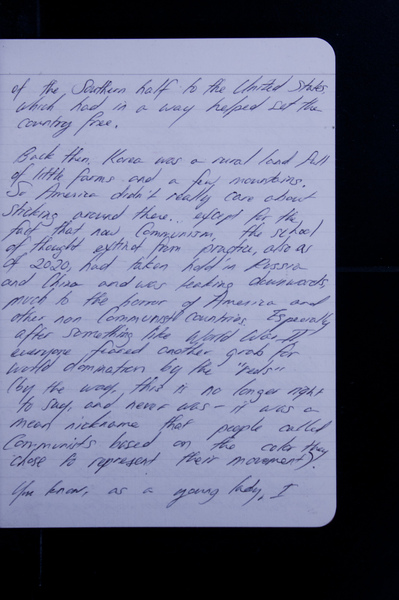 of the Southern half to the United States
which had in a way helped set the
country free.
Back then, Korea was a rural land full
of little farms and a few mountains.
So America didn't really care about
sticking around there.. except for the
fact that now Communism, the school
of thought extinct from practice, also as
of 2020, had taken hold in Russia
and China and was leaking downwards
much to the horror of America and
other non Communist countries. Especially
after something like World War II
everyone feared another grab for
world domination by the "reds"
(by the way, this is no longer right
to say, and never was - it was a
mean nickname that people called
Communists based on the color they
chose to represent their movement).
You know, as a young lady, I